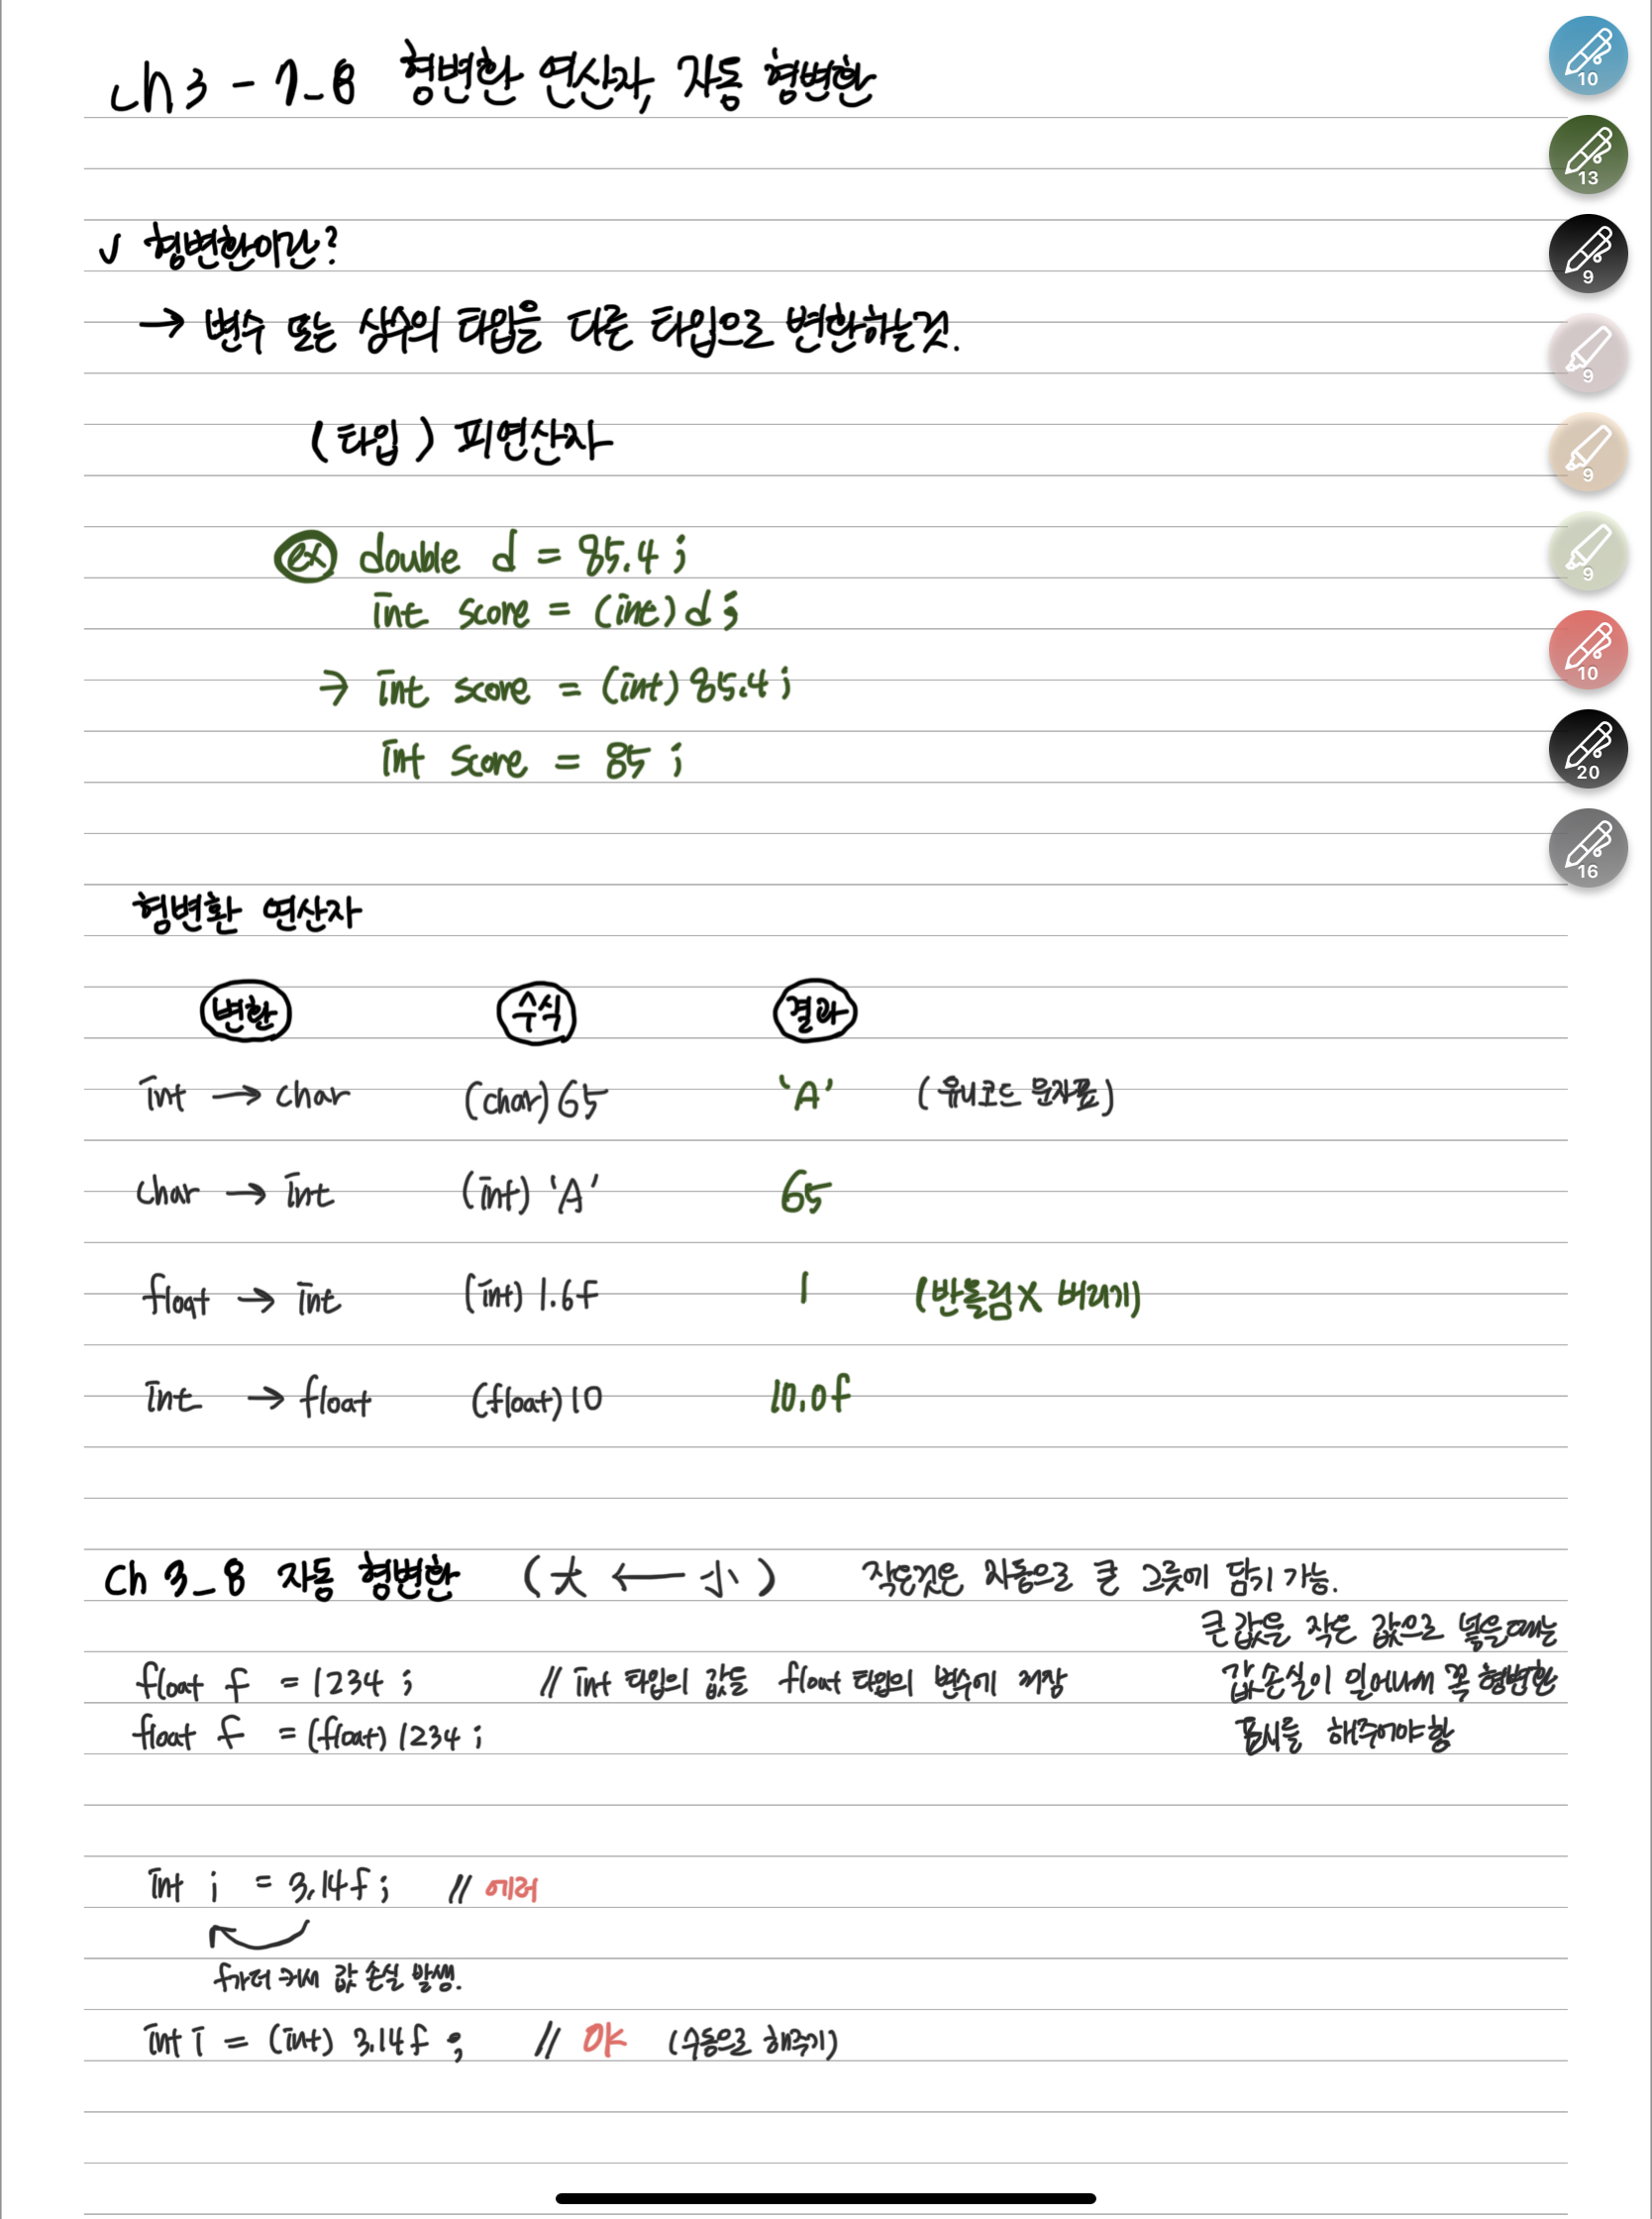 ch3 - 7_8 형변환 연산자, 자동 형변환
√ 형변환이란?
→ 변수 또는 상수의 타입을 다른 타입으로 변환하는것.
(타입) 피연산자
ex double d = 85.4;
int score = (int)d;
→ int score = (int)85.4;
int score = 85;
형변환 연산자
변환 수식 결과
int → char (char)65 'A' (유니코드 문자표)
char → int (int) 'A' 65
float → int (int) 1.6f 1 (반올림X 버리기)
int → float (float)10 10.0f
Ch 3_8 자동 형변환 (大 ← 小) 작은것은 자동으로 큰 그릇에 담기 가능.
큰 값을 작은 값으로 넣을때는
float f = 1234; // int 타입의 값을 float 타입의 변수에 저장 값손실이 일어나서 꼭 형변환
float f = (float)1234; 표시를 해주어야함
int i = 3.14f; // 에러
f가 더 커서 값 손실 발생.
int i = (int) 3.14f; // OK (수동으로 해주기)
10
13
9
9
9
9
10
20
16